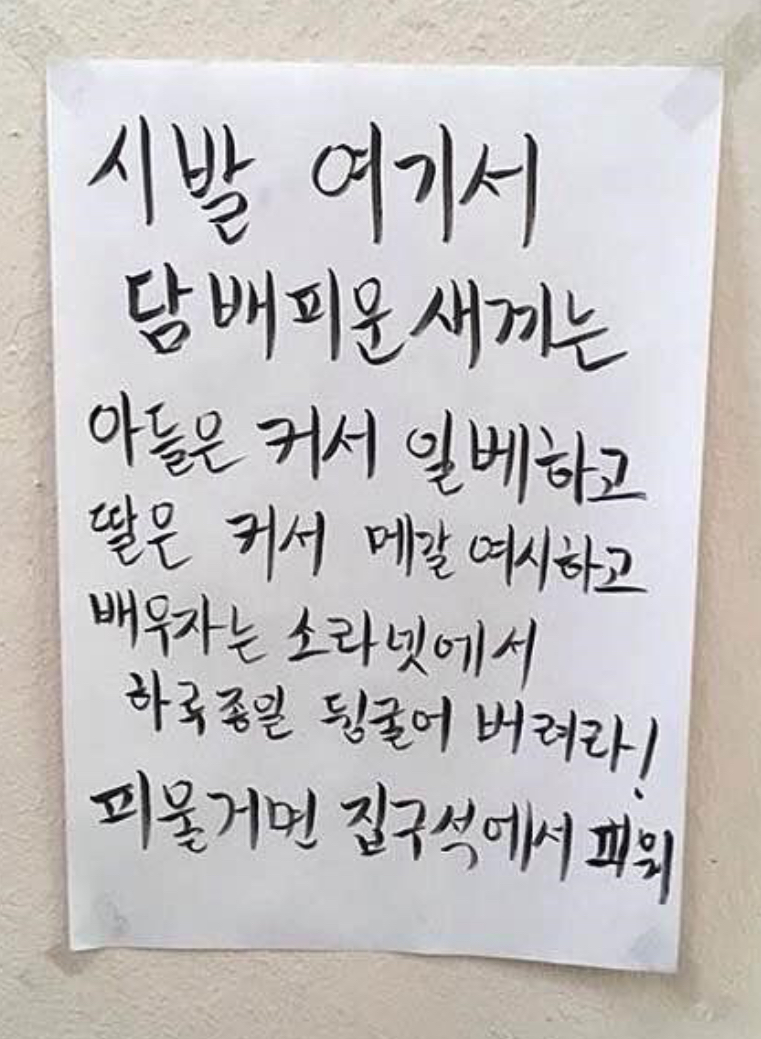 시발 여기서
담배피운새끼는
아들은 커서 일베하고
딸은 커서 메갈 여시하고
배우자는 소라넷에서
하루종일 뒹굴어 버려라!
피울거면 집구석에서 피워